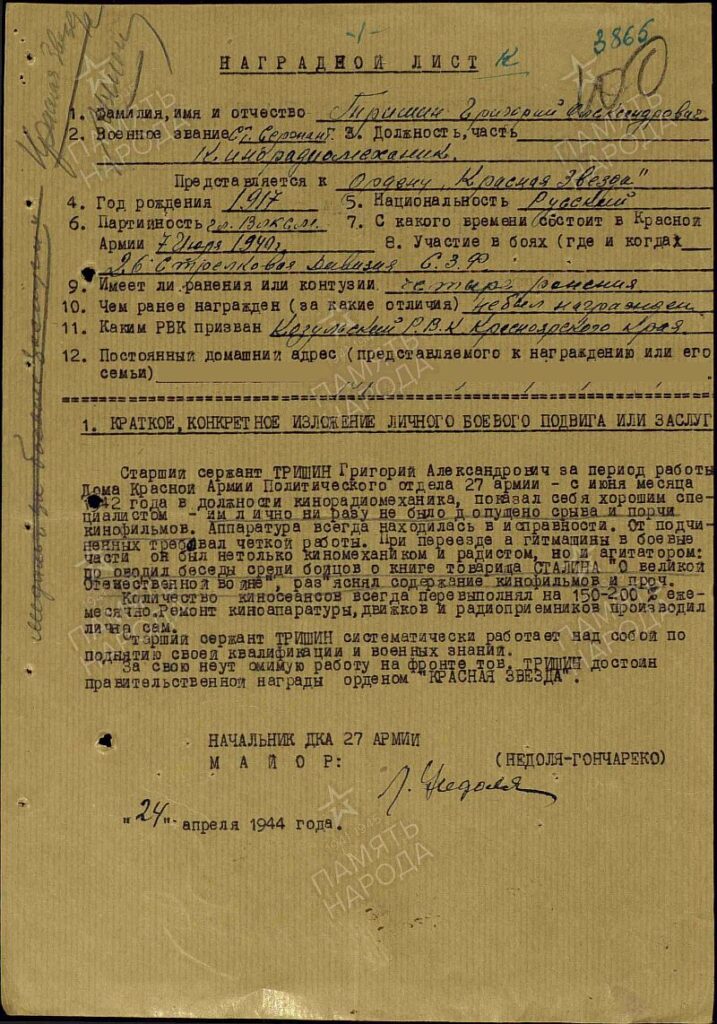 -1-
3865
НАГРАДНОЙ ЛИСТ К
1. Фамилия, имя и отчество Тришин Григорий Александрович
2. Военное звание Ст. Сержант 3. Должность, часть
Кинорадиомеханик.
Представляется к Ордену „Красная Звезда"
4. Год рождения 1917 5. Национальность Русский
6. Партийность чл. ВЛКСМ. 7. С какого времени состоит в Красной
Армии 1940г. 8. Участие в боях (где и когда)
26 Стрелковая Дивизия С.З.Ф.
9. Имеет ли ранения или контузии четыре ранения
10. Чем ранее награжден (за какие отличия) не был награжден
11. Каким РВК призван Козульский Р.В.К Красноярского Края.
12. Постоянный домашний адрес (представляемого к награждению или его
семьи)
1. КРАТКОЕ, КОНКРЕТНОЕ ИЗЛОЖЕНИЕ ЛИЧНОГО БОЕВОГО ПОДВИГА ИЛИ ЗАСЛУГ
Старший сержант ТРИШИН Григорий Александрович за период работы
Дома Красной Армии Политического отдела 27 армии - с июня месяца
1942 года в должности кинорадиомеханика, показал себя хорошим спе-
циалистом - им лично ни разу не было допущено срыва и порчи
кинофильмов. Аппаратура всегда находилась в исправности. От подчи-
ненных требовал четкой работы. При переезде агитмашины в боевые
части он был нетолько киномехаником и радистом, но и агитатором:
по оводил беседы среди бойцов о книге товарища СТАЛИНА "О великой
Отечественной войне", раз"яснял содержание кинофильмов и проч.
Количество киносеансов всегда перевыполнял на 150-200 % еже-
месячно. Ремонт киноапаратуры, движков и радиоприемников производил
лично сам.
Старший сержант ТРИШИН систематически работает над собой по
поднятию своей квалификации и военных знаний.
За свою неут омимую работу на фронте тов. ТРИШИН достоин
правительственной награды орденом "КРАСНАЯ ЗВЕЗДА".
НАЧАЛЬНИК ДКА 27 АРМИИ
МАЙОР: (НЕДОЛЯ-ГОНЧАРЕКО)
Л. Недоля
"24" апреля 1944 года.
Красная Звезда
ПАМЯТЬ
НАРОДА